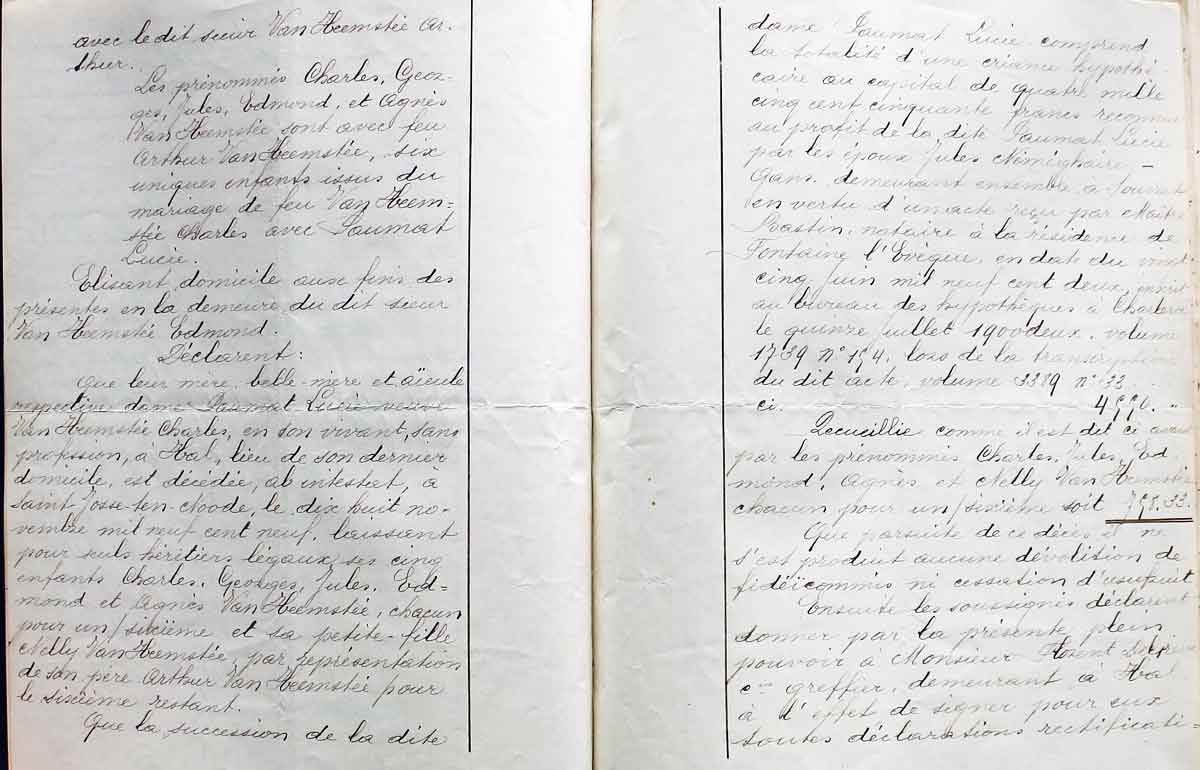 avec le dit sieur Van Heemstée Ar-
thur.
Les prénommés Charles, Geor-
ges, Jules, Edmond, et Agnès
Van Heemstée sont avec feu
Arthur Van Heemstée, six
uniques enfants issus du
mariage de feu Van Heem-
stée Charles avec Paumat
Lucie.
Elisant domicile aux fins des
présentes en la demeure du dit sieur
Van Heemstée Edmond.
Déclarent:
Que leur mère, belle-mère et aïeule
respective dame Paumat Lucie veuve
Van Heemstée Charles, en son vivant, sans
profession, à Hal, lieu de son dernier
domicile, est décédée, ab intestat, à
Saint Josse-ten-Noode, le dix huit no-
vembre mil neuf cent neuf, laissant
pour seuls héritiers légaux ses cinq
enfants Charles, Georges, Jules, Ed-
mond et Agnès Van Heemstée, chacun
pour un/sixième et sa petite-fille
Nelly Van Heemstée, par représentation
de son père Arthur Van Heemstée pour
le sixième restant.
Que la succession de la dite
dame Paumat Lucie comprend
la totalité d'une créance hypothé-
caire au capital de quatre mille
cinq cent cinquante francs reconnue
au profit de la dite Paumat Lucie
par les époux Jules Néméghaire -
Gans, demeurant ensemble à
en vertu d'un acte reçu par Maître
notaire à la résidence de
Fontaine l'Evêque, en date du vingt
cinq juin mil neuf cent deux, inscrit
au bureau des hypothèques à Charleroi
le quinze juillet 1900 deux, volume
1739 n° 154, lors de la transcription
du dit acte, volume 3389 n° 33
ci. 4550. "
Recueillie comme il est dit ci avant
par les prénommés Charles, Jules, Ed-
mond, Agnès et Nelly Van Heemstée
chacun pour un/sixième soit 758.33.
Que par suite de ce décès il ne
s'est produit aucune dévolution de
fidéicommis ni cessation d'usufruit
Ensuite les soussignés déclarent
donner par la présente plein
pouvoir à Monsieur Florent
greffier, demeurant à Hal
à l'effet de signer pour eux
toutes déclarations rectificati-